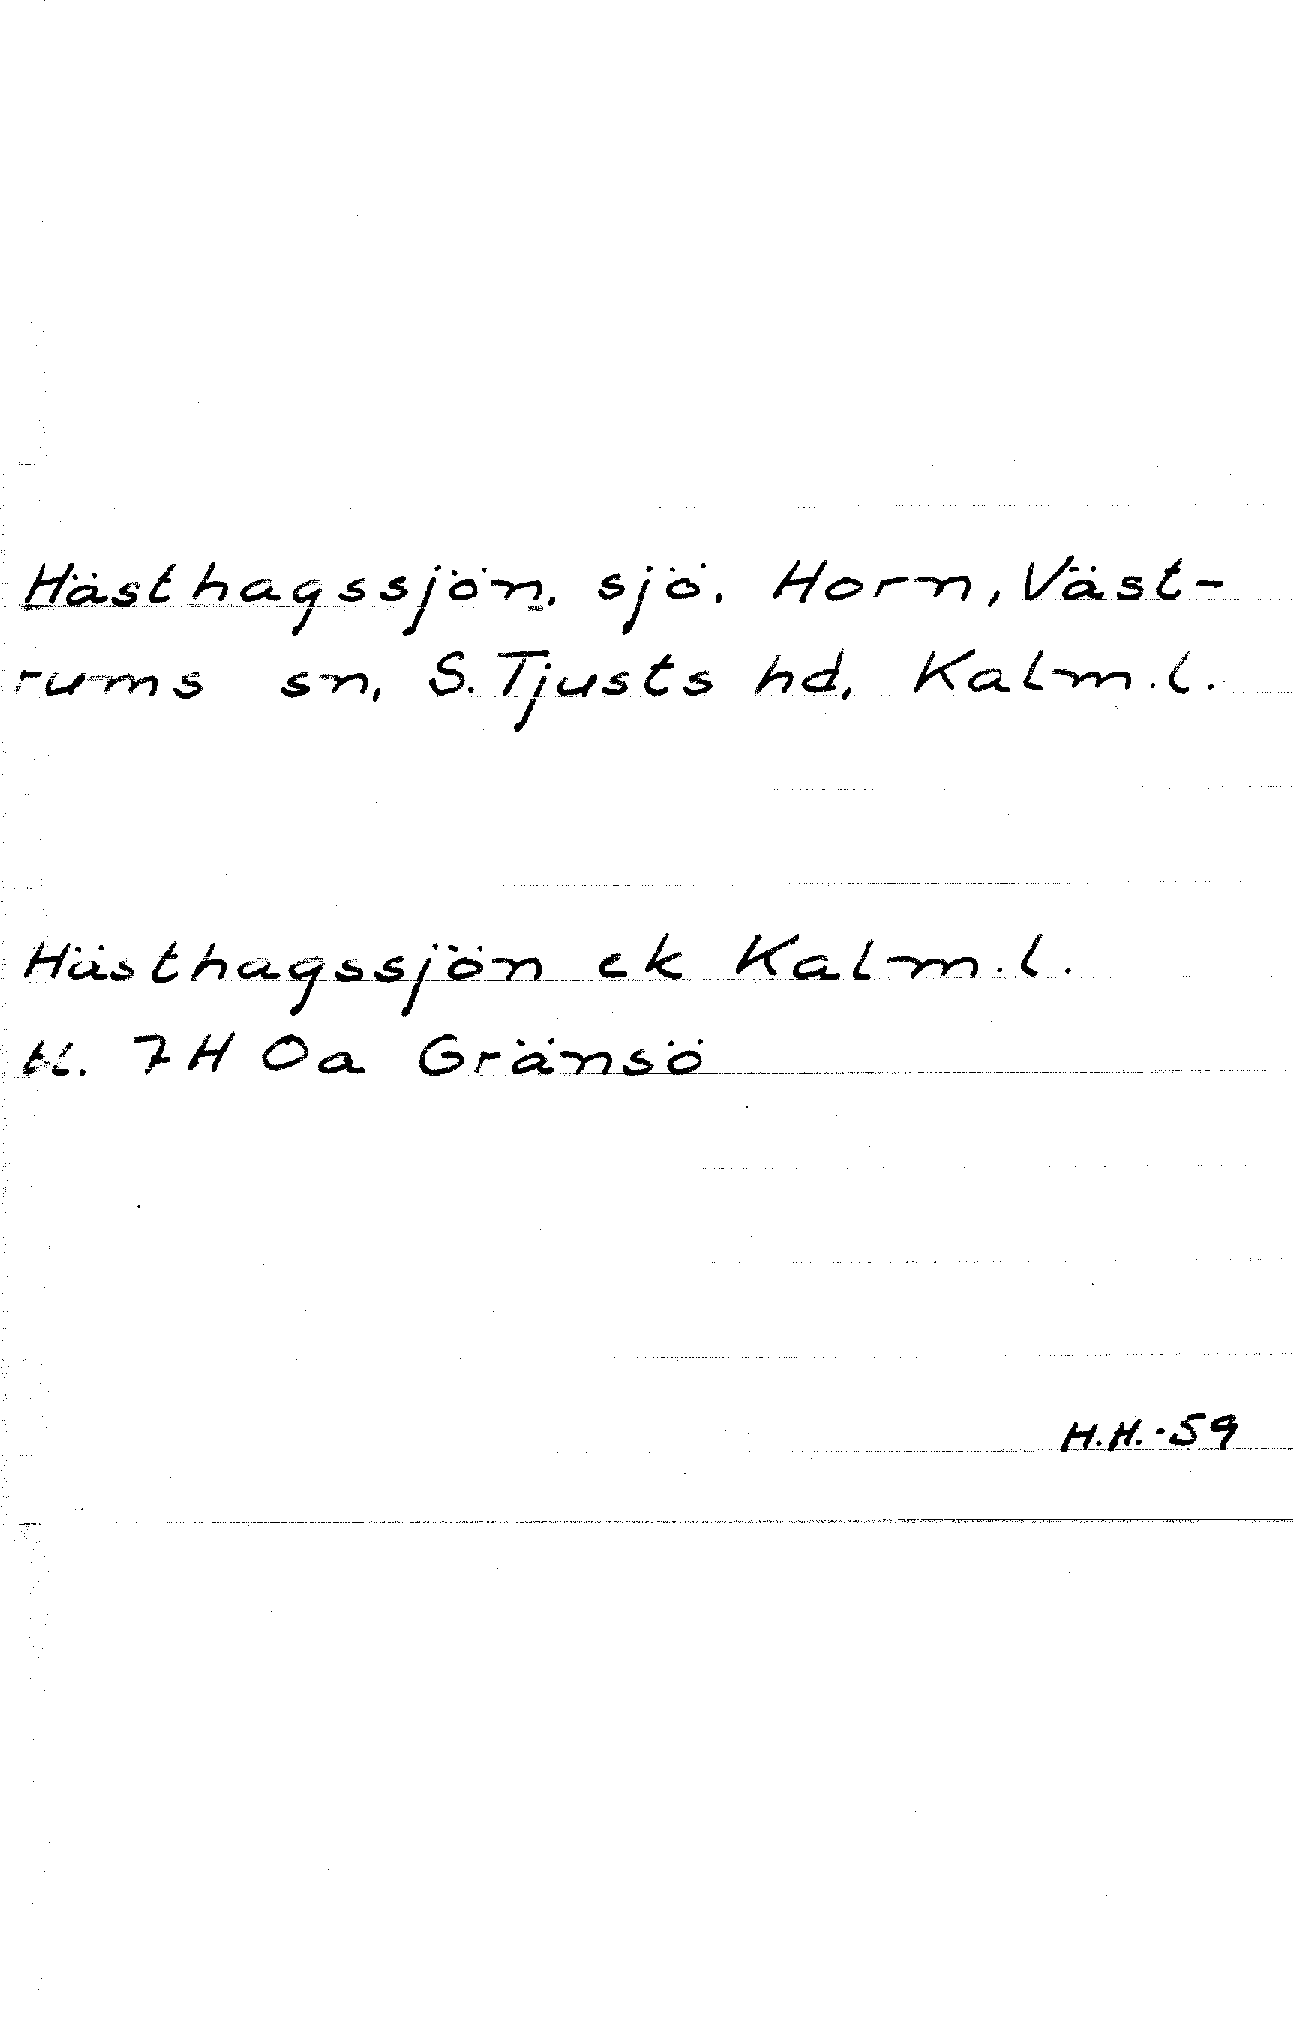 Hästhagssjön, sjö, Horn, Väst-
rums sn, S. Tjusts hd, Kalm. l.
Hästhagssjön ek Kalm. l.
bl. 7H 0a Gränsö
H.H.-59